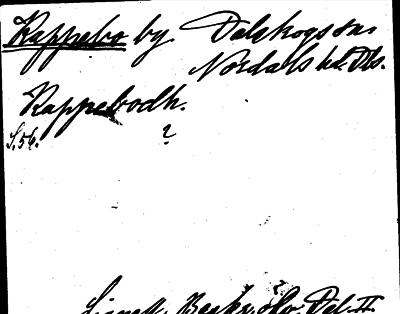 Kappebo by. Dalskogs sn.
Nordals hd. Dls.
Kappebodh.
S. 56. ?
Lignell, Beskr. Del. II